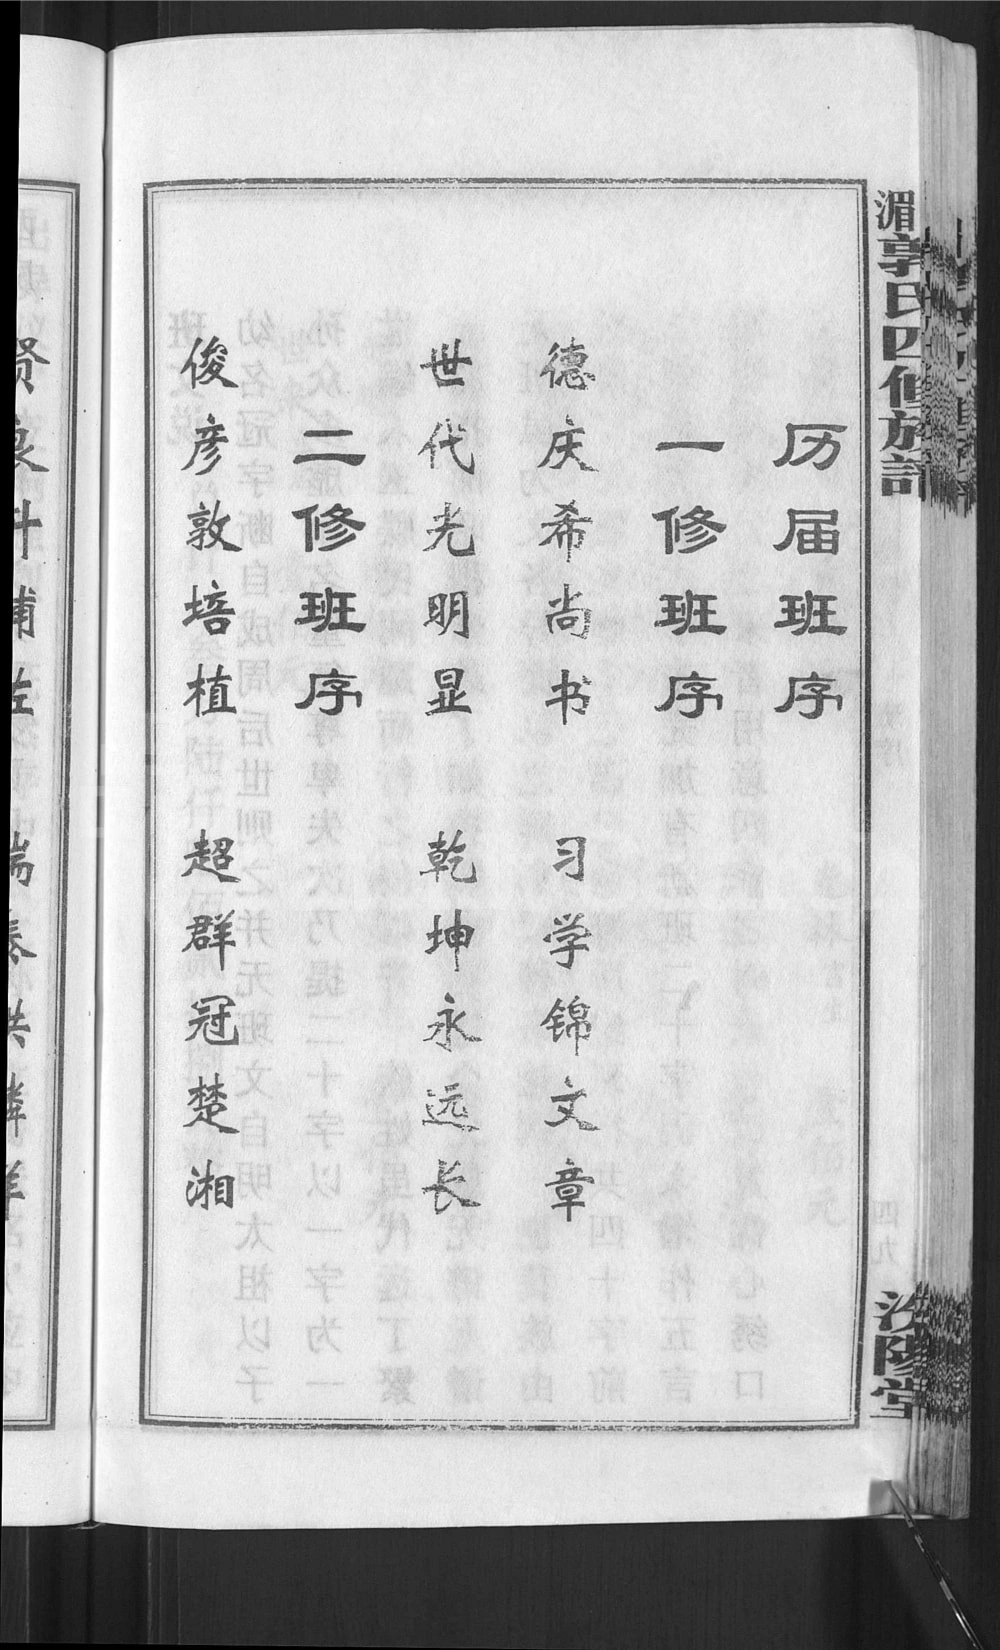 湄郭氏四修族谱
汾陽堂
历届班序
一修班序
德庆希尚书 习学锦文章
世代光明显 乾坤永远长
二修班序
俊彦敦培植 超群冠楚湘